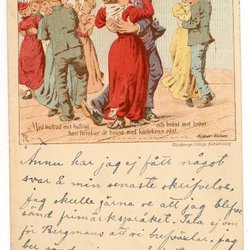 Med hufvud mot hufvud och bröst mot bröst
han hviskar åt henne med kärlekens röst.
Göteborgs Litogr. Aktiebolag
Ännu har jag ej fått något
svar å min senaste skrifvelse,
jag skulle gärna se att jag blefve
sänd primärkspråket. Tala ej om
för Bergmans att vi brefväxla, jag